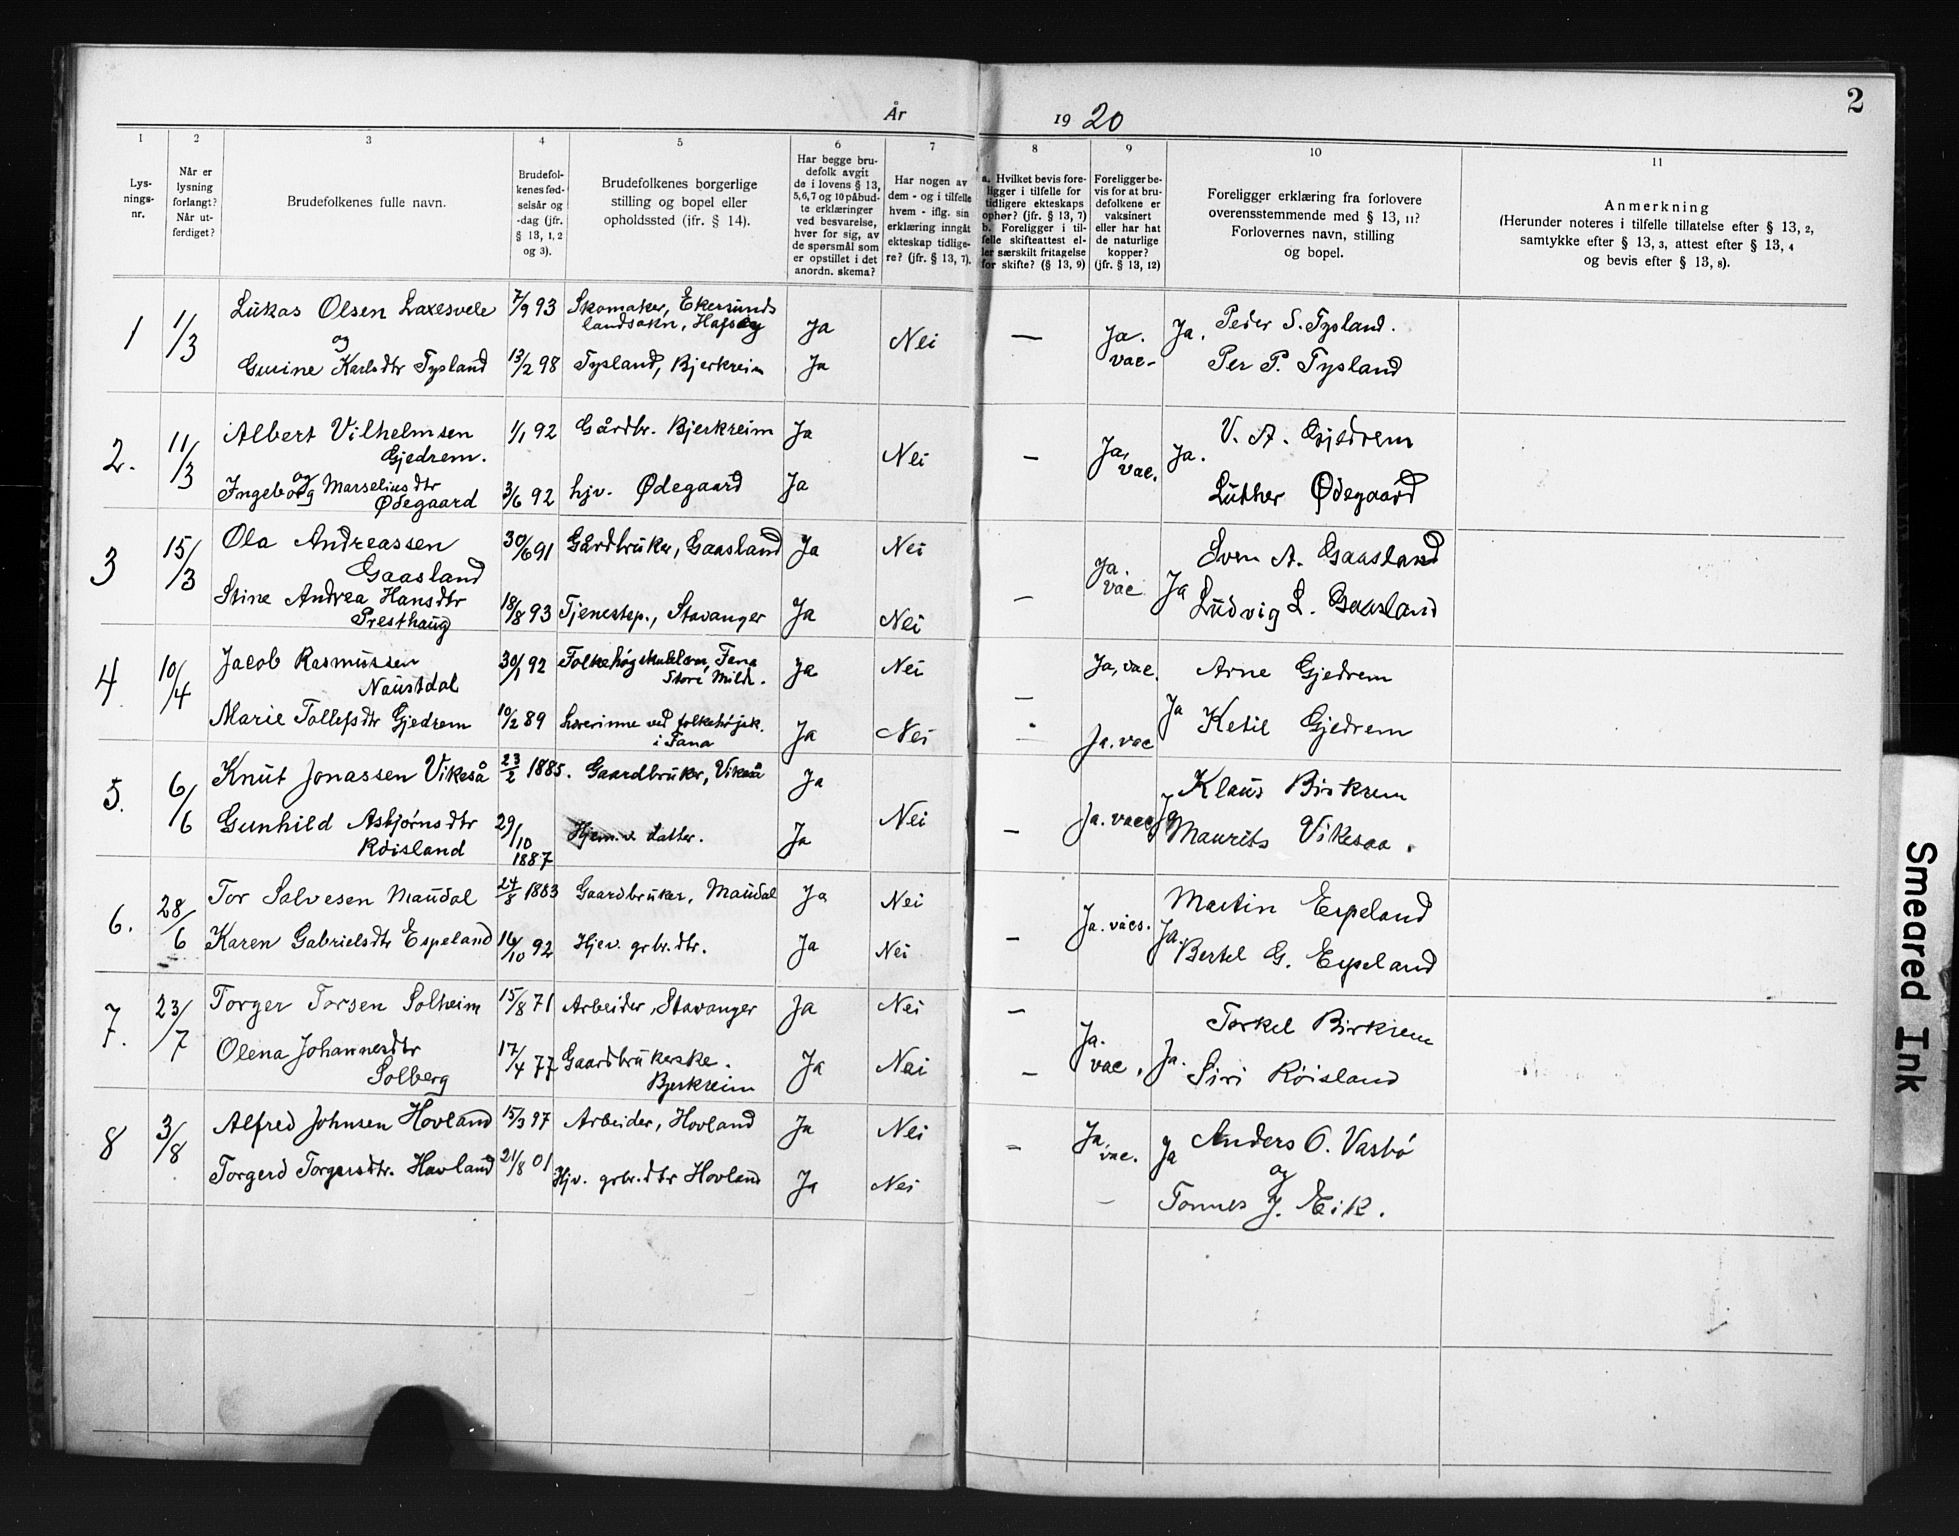 2
År 1920
1 2 3 4 5 6 7 8 9 10 11
Lys-
nings-
nr.
Når er
lysning
forlangt?
Når ut-
ferdiget?
Brudefolkenes fulle navn.
Brudefol-
kenes fød-
selsår og
-dag (jfr.
§ 13, 1, 2
og 3).
Brudefolkenes borgerlige
stilling og bopel eller
opholdssted (jfr. § 14).
Har begge bru-
defolk avgit
de i lovens § 13,
5, 6, 7 og 10 påbud-
te erklæringer
ved besvarelse,
hver for sig, av
de spørsmål som
er opstillet i det
anordn. skema?
Har nogen av
dem - og i tilfelle
hvem - iflg. sin
erklæring inngåt
ekteskap tidlige-
re? (jfr. § 13, 7).
a. Hvilket bevis fore-
ligger i tilfelle for
tidligere ekteskaps
ophør? (jfr. § 13, 7)
b. Foreligger i til-
felle skifteattest el-
ler særskilt fritagelse
for skifte? (§ 13, 9)
Foreligger be-
vis for at bru-
defolkene er
vaksinert
eller har hat
de naturlige
kopper?
(jfr. § 13, 12)
Foreligger erklæring fra forlovere
overensstemmende med § 13, 11?
Forlovernes navn, stilling
og bopel.
Anmerkning
(Herunder noteres i tilfelle tillatelse efter § 13, 2,
samtykke efter § 13, 3, attest efter § 13, 4
og bevis efter § 13, 8).
1 1/3 Lukas Olsen Laxesvele 7/9 93 Skomaker, Ekersunds
landsokn, Hafsøy Ja Nei — Ja. vac- Ja. Peder S. Tysland.
og
Gurine Karlsdtr Tysland 13/2 98 Tysland, Bjerkreim Ja Per P. Tysland
2. 11/3 Albert Vilhelmsen 1/1 92 Gårdbr. Bjerkreim Ja Nei — Ja, vac. Ja. V. A. Gjedrem
Gjedrem.
og
Ingeborg Marseliusdtr 3/6 92 hjv. Ødegaard Ja Luther Ødegaard
Ødegaard
3 15/3 Ola Andreassen 30/6 91 Gårdbruker, Gaasland Ja Nei Ja. vac Ja Sven A. Gaasland
Gaasland
Stine Andrea Hansdtr 18/8 93 Tjenestep., Stavanger Ja Nei — Ludvig L. Gaasland
Presthaug
4 10/4 Jacob Rasmussen 30/1 92 Folkehøgskulelærer, Fana Ja Nei — Ja, vac. Ja Arne Gjedrem
Naustdal Store Milde.
Marie Tollefsdtr Gjedrem 10/2 89 Lærerinne ved folkehøjsk. Ja Nei — Ja. vac Ketil Gjedrem
i Fana
5. 6/6 Knut Jonassen Vikeså 23/2 1885. Gaardbruker, Vikeså Ja Nei — Ja. vacc Ja Klaus Birkrem
Gunhild Asbjørnsdtr 29/10 1887 Hjem.v. datter. Ja Maurits Vikesaa.
Röisland
6. 28/6 Tor Salvesen Maudal 24/8 1883 Gaardbruker, Maudal Ja Nei — Ja. vács. Ja. Martin Espeland
Karen Gabrielsdtr Espeland 16/10 92 Hjev. grbr.dtr. Ja Nei Bertel G. Espeland
7. 23/7 Torger Torsen Solheim 15/8 71 Arbeider, Stavanger Ja Nei — Ja. vac. Ja. Torkel Birkrem
Olena Johannesdtr 17/4 77 Gaardbrukerske. Ja Nei — Siri Röisland
Solberg Bjerkreim
8 3/8 Alfred Johnsen Hovland 15/3 97 Arbeider, Hovland Ja Nei — Ja, vac. Ja Anders O. Vasbö
og
Torgerd Torgersdtr. Hovland 21/8 01 Hjv. grbr.dtr Hovland Ja Nei – Tonnes J. Eik.
Smeared Ink